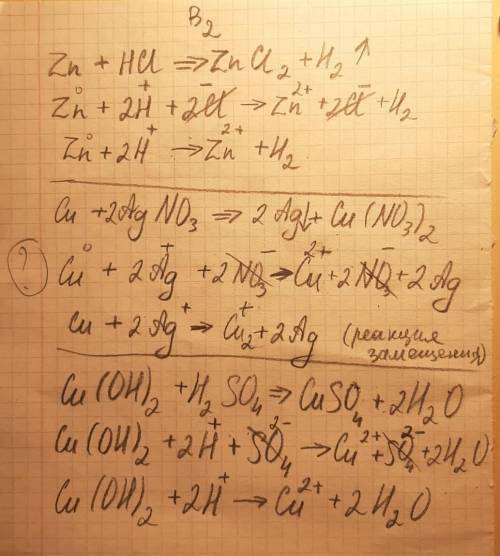 В2
Zn + HCl ⇒ ZnCl₂ + H₂ ↑
Zn⁰ + 2H⁺ + 2Cl⁻ → Zn²⁺ + 2Cl⁻ + H₂
Zn⁰ + 2H⁺ → Zn²⁺ + H₂
Cu + 2AgNO₃ ⇒ 2Ag↓ + Cu(NO₃)₂
? Cu⁰ + 2Ag⁺ + 2NO₃⁻ → Cu²⁺ + 2NO₃⁻ + 2Ag
Cu + 2Ag⁺ → Cu₂⁺ + 2Ag (реакция
замещения)
Cu(OH)₂ + H₂SO₄ ⇒ CuSO₄ + 2H₂O
Cu(OH)₂ + 2H⁺ + SO₄²⁻ → Cu²⁺ + SO₄²⁻ + 2H₂O
Cu(OH)₂ + 2H⁺ → Cu²⁺ + 2H₂O